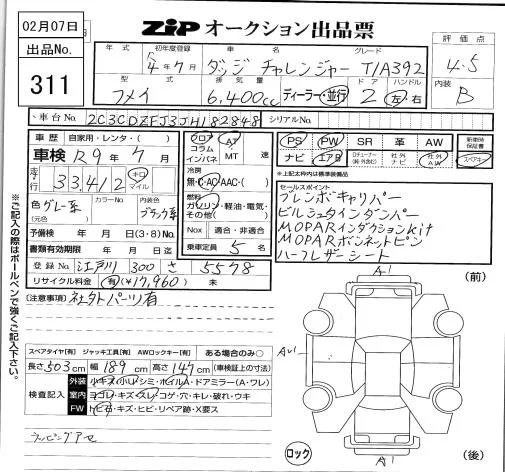 02月07日
出品No.
311
ZIP オークション出品票
年式
初年度登録
R4年7月
車名
ダッジ チャレンジャー
グレード
T/A392
評価点
4.5
型式
フメイ
排気量
6,400cc
ディーラー・並行
ドア
2
ハンドル
左・右
内装
B
車台No.
2C3CDZFJ3JH182848
シリアルNo.
車歴
自家用・レンタ・( )
車検 R9年 7月
走行
33,412
キロ
マイル
色
グレー系
(元色)
カラーNo.
内装色
ブラック系
予備検 年 月 日(3・8)No.
書類有効期限 年 月 日迄
フロア
コラム
インパネ
AT
MT
速
冷房
無・C・AC・AAC・( )
燃料
ガソリン・軽油・電気・
その他( )
Nox
適合・非適合
乗車定員 5 名
登録No. 江戸川 300 さ 5578
リサイクル料金 有(¥17,960) 未
PS PW SR 革 AW
ナビ エアB
Dチューナー
(純・社外)
社外
ナビ
社外
AW
新車時
保証書
スペアキー
*上記太枠内は標準装備品
セールスポイント
ブレンボキャリパー
ビルシュタインダンパー
MOPARインダクションkit
MOPARボンネットピン
ハーフレザーシート
(注意事項) 社外パーツ有
※ご記入の際はボールペンで強くご記入下さい。
スペアタイヤ[有] ジャッキ工具[有] AWロックキー[有] ある場合のみ○
長さ503cm 幅189cm 高さ147cm(車検証上の寸法)
検査記入
外装
小キズ・小レ・シミ・ホイルA・ドアミラー(A・ワレ)
室内
ヨゴレ・キズ・スレ・コゲ・穴・キレ・破れ・ウキ
FW
トビ石・キズ・ヒビ・リペア跡・X要ス
ラッピングアセ
(前)
A1
AU1
A1
A1
ロック
(後)